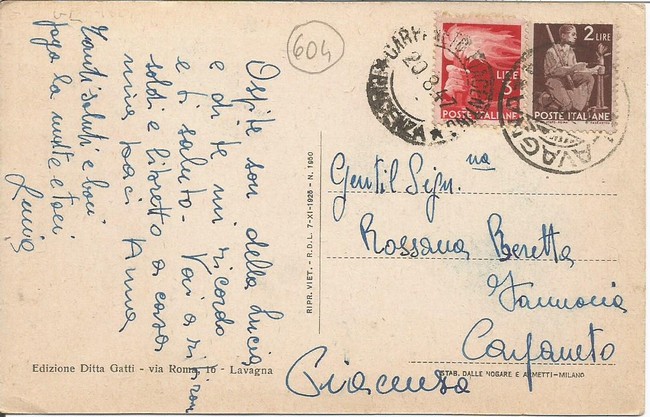 604
Ospite son della Lucia
e di te mi ricordo
e ti saluto. Vai a
soldi e libretto a casa
mia baci Anna
Tanti saluti e baci
Lucia
Edizione Ditta Gatti - via Roma, 16 - Lavagna
RIPR. VIET. - R.D.L. 7-XI-1925 - N. 1950
LIRE 3
POSTE ITALIANE
2 LIRE
POSTE ITALIANE
CARPANETO PIACENTINO
20.8.47
LAVAGNA
Gentil Sign.na
Rossana Beretta
Farmacia
Carpaneto
Piacenza
STAB. DALLE NOGARE E ARMETTI - MILANO